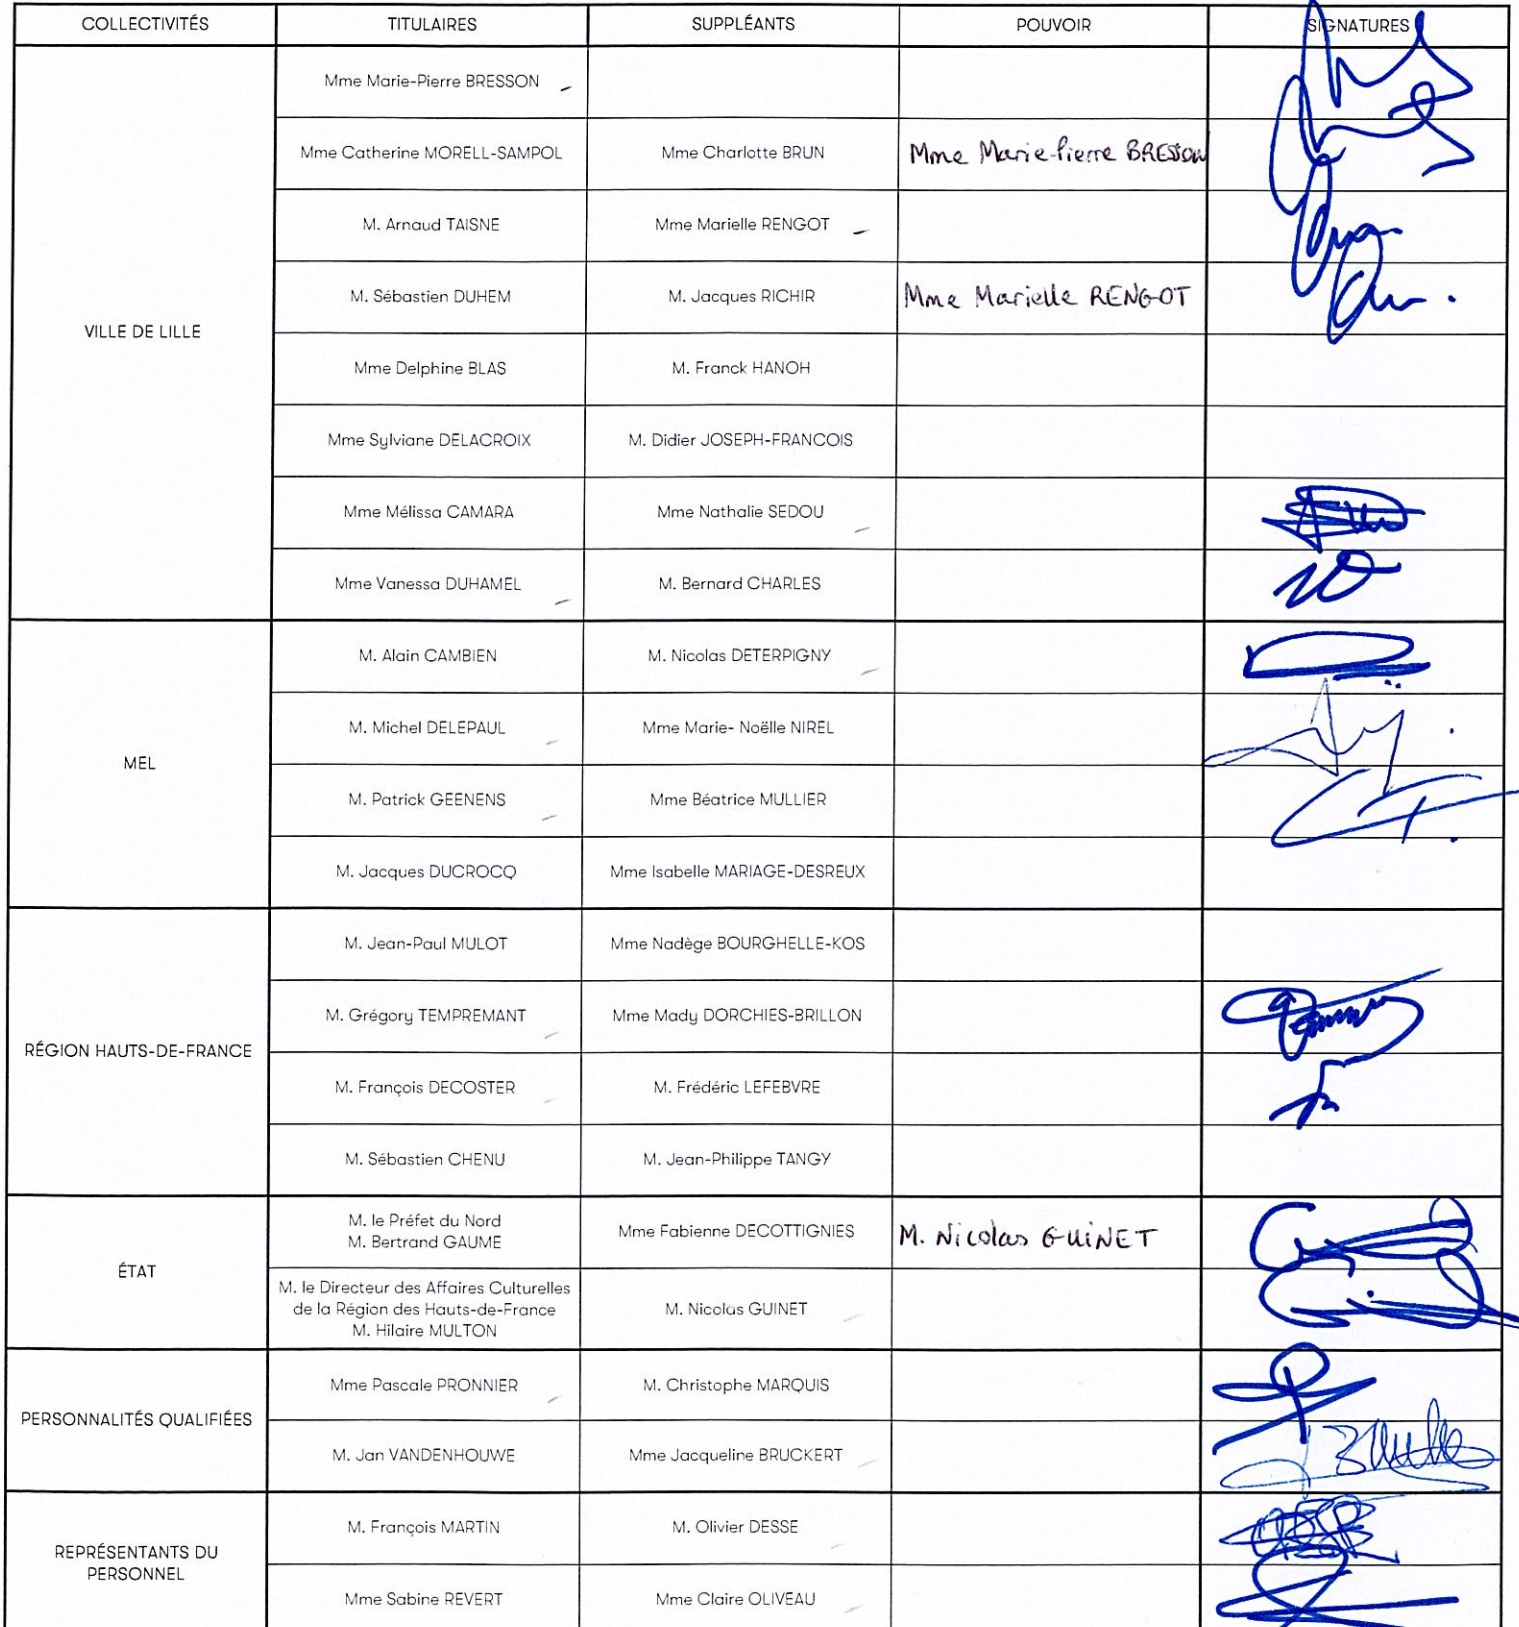 COLLECTIVITÉS TITULAIRES SUPPLÉANTS POUVOIR SIGNATURES
Mme Marie-Pierre BRESSON
Mme Catherine MORELL-SAMPOL Mme Charlotte BRUN Mme Marie-Pierre BRESSON
M. Arnaud TAISNE Mme Marielle RENGOT
M. Sébastien DUHEM M. Jacques RICHIR Mme Marielle RENGOT
VILLE DE LILLE
Mme Delphine BLAS M. Franck HANOH
Mme Sylviane DELACROIX M. Didier JOSEPH-FRANCOIS
Mme Mélissa CAMARA Mme Nathalie SEDOU
Mme Vanessa DUHAMEL M. Bernard CHARLES
M. Alain CAMBIEN M. Nicolas DETERPIGNY
M. Michel DELEPAUL Mme Marie- Noëlle NIREL
MEL
M. Patrick GEENENS Mme Béatrice MULLIER
M. Jacques DUCROCQ Mme Isabelle MARIAGE-DESREUX
M. Jean-Paul MULOT Mme Nadège BOURGHELLE-KOS
M. Grégory TEMPREMANT Mme Mady DORCHIES-BRILLON
RÉGION HAUTS-DE-FRANCE
M. François DECOSTER M. Frédéric LEFEBVRE
M. Sébastien CHENU M. Jean-Philippe TANGY
M. le Préfet du Nord
M. Bertrand GAUME Mme Fabienne DECOTTIGNIES M. Nicolas GUINET
ÉTAT
M. le Directeur des Affaires Culturelles
de la Région des Hauts-de-France M. Nicolas GUINET
M. Hilaire MULTON
Mme Pascale PRONNIER M. Christophe MARQUIS
PERSONNALITÉS QUALIFIÉES
M. Jan VANDENHOUWE Mme Jacqueline BRUCKERT
M. François MARTIN M. Olivier DESSE
REPRÉSENTANTS DU
PERSONNEL
Mme Sabine REVERT Mme Claire OLIVEAU